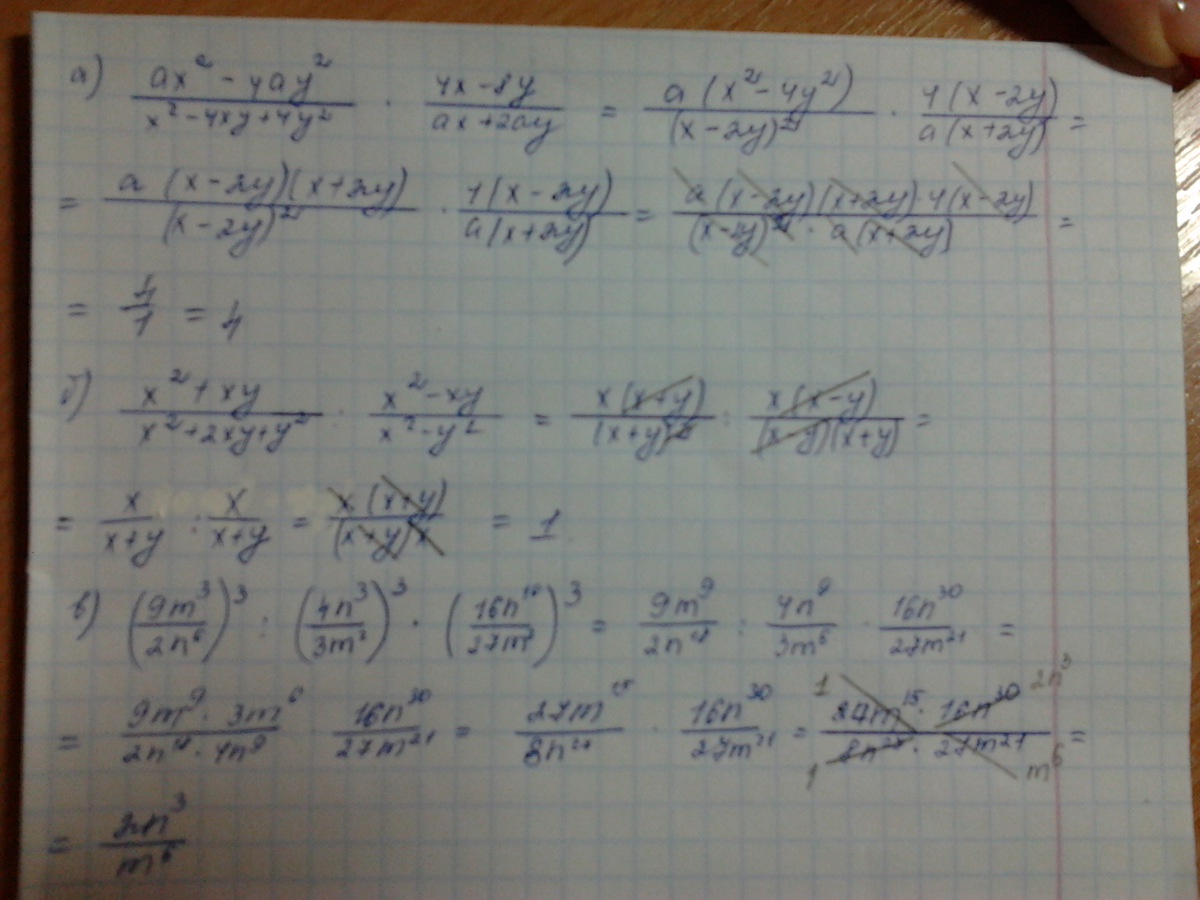 а) (ax² - 4ay²)/(x² - 4xy + 4y²) · (4x - 8y)/(ax + 2ay) = a(x² - 4y²)/(x - 2y)² · 4(x - 2y)/a(x + 2y) =
= a(x - 2y)(x + 2y)/(x - 2y)² · 4(x - 2y)/a(x + 2y) = a(x - 2y)(x + 2y) · 4(x - 2y)/(x - 2y)² · a(x + 2y) =
= 4/1 = 4
б) (x² + xy)/(x² + 2xy + y²) : (x² - xy)/(x² - y²) = x(x + y)/(x + y)² : x(x - y)/(x - y)(x + y) =
= x/(x + y) : x/(x + y) = x(x + y)/(x + y)x = 1
в) (9m³/2n⁶)³ : (4n³/3m²)³ · (16n¹⁰/27m⁷)³ = 9m⁹/2n¹⁸ : 4n⁹/3m⁶ · 16n³⁰/27m²¹ =
= 9m⁹ · 3m⁶/2n¹⁸ · 4n⁹ · 16n³⁰/27m²¹ = 27m¹⁵/8n²⁷ · 16n³⁰/27m²¹ = 1 27m¹⁵ · 16n³⁰ 2n³/1 8n²⁷ · 27m²¹ m⁶ =
= 2n³/m⁶